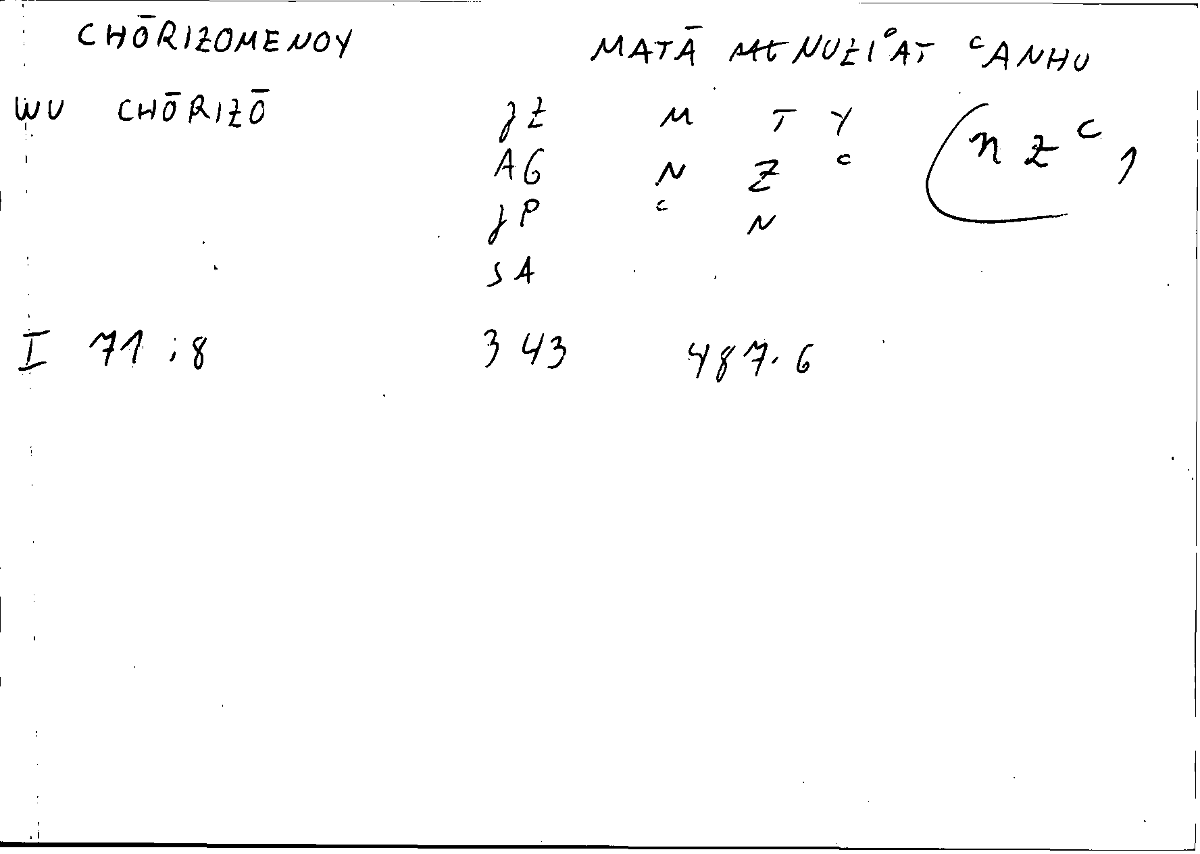 CHŌRIZOMENOY MATĀ MENUZI°AT ᶜANHU
WU CHŌRIZŌ
gZ M T Y
AG N Z ᶜ
gP ᶜ N
SA
(nzᶜ,
I 71;8 343 487.6